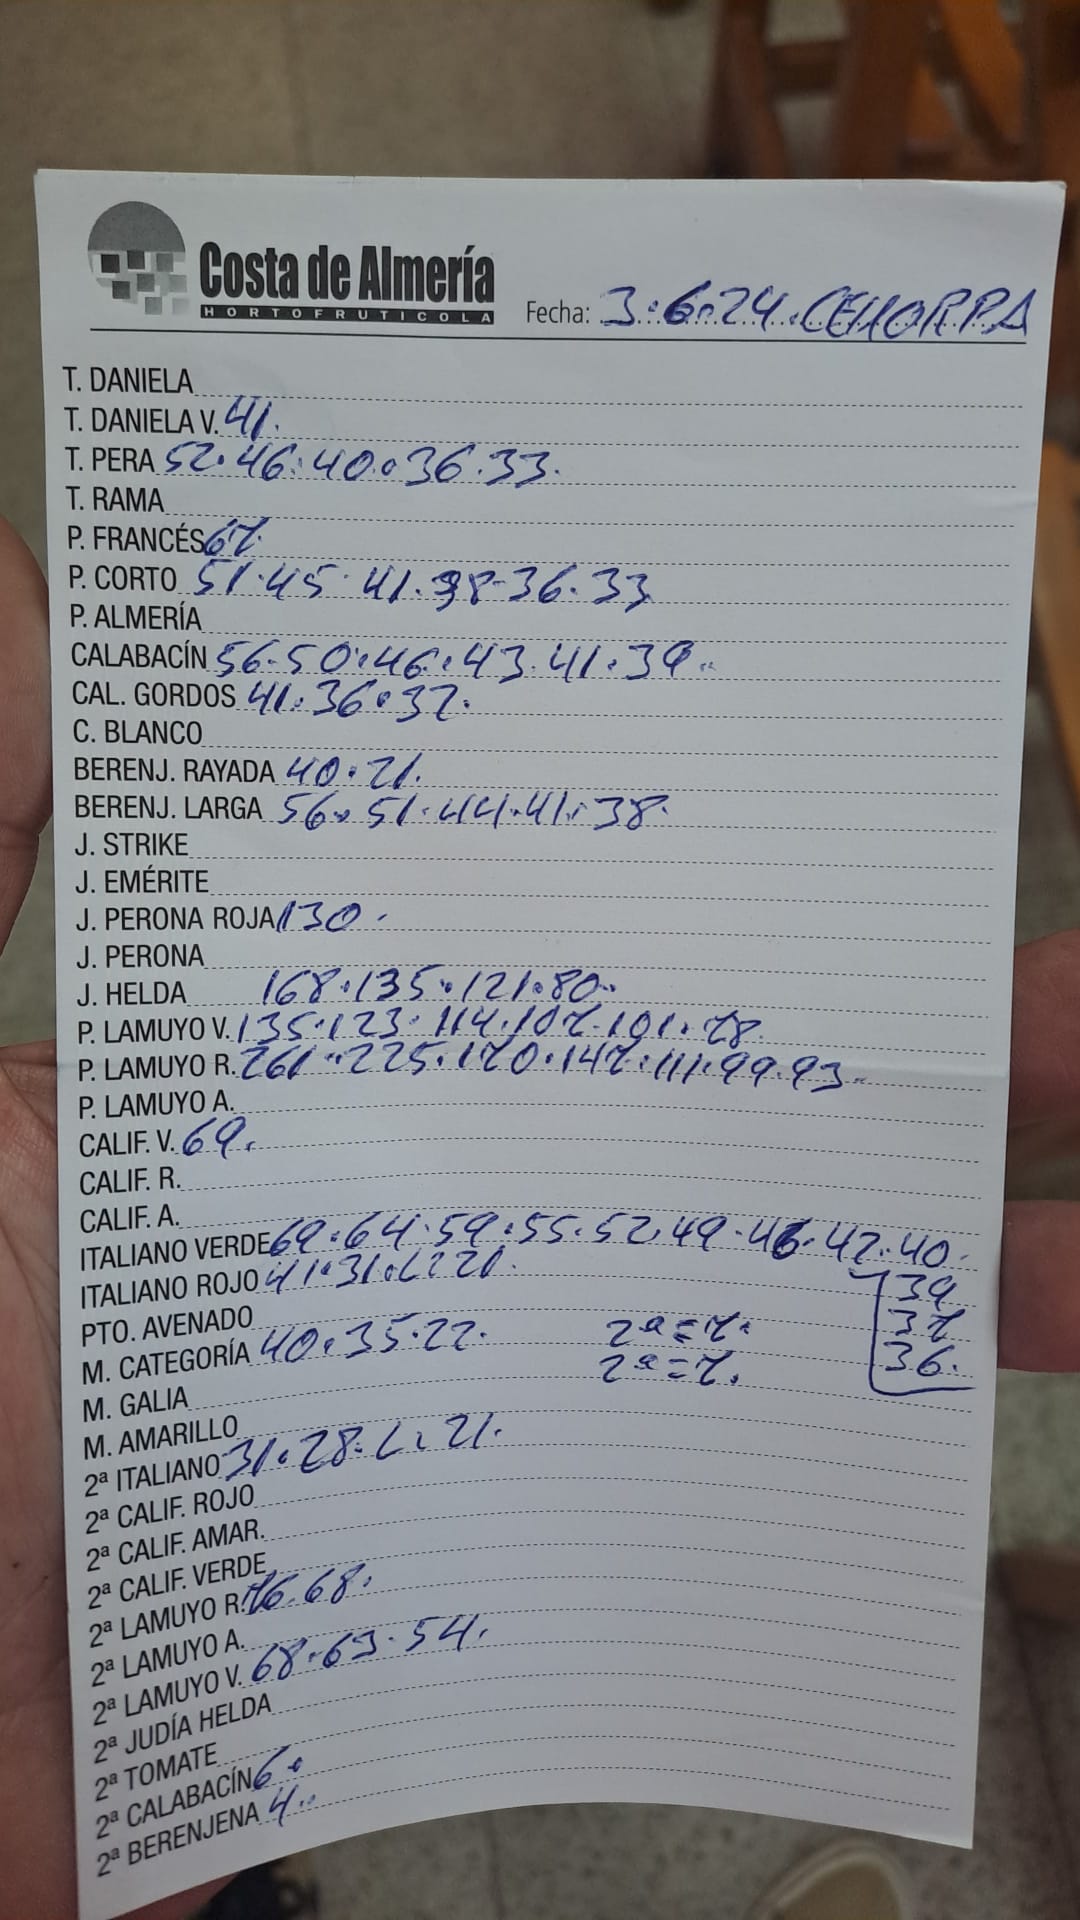 Costa de Almería
HORTOFRUTICOLA
Fecha: 3.6.24. CEHORPA
T. DANIELA
T. DANIELA V. 41.
T. PERA 52.46.40.36.33.
T. RAMA
P. FRANCÉS 67.
P. CORTO 51.45.41.38-36.33
P. ALMERÍA
CALABACÍN 56-50.46.43.41.39..
CAL. GORDOS 41.36.32.
C. BLANCO
BERENJ. RAYADA 40.21.
BERENJ. LARGA 56.51.44.41.38.
J. STRIKE
J. EMÉRITE
J. PERONA ROJA 130.
J. PERONA
J. HELDA 168.135.121.80..
P. LAMUYO V. 135.123.114.107.101.78.
P. LAMUYO R. 261.225.170.147.111.99.93..
P. LAMUYO A.
CALIF. V. 69.
CALIF. R.
CALIF. A.
ITALIANO VERDE 69.64.59.55.52.49.46.42.40.
39
37
36.
ITALIANO ROJO 41.31.L.21.
PTO. AVENADO
M. CATEGORÍA 40.35.22. 2ª=7.
2ª=7.
M. GALIA
M. AMARILLO
2ª ITALIANO 31.28.L.21.
2ª CALIF. ROJO
2ª CALIF. AMAR.
2ª CALIF. VERDE
2ª LAMUYO R. 76.68.
2ª LAMUYO A.
2ª LAMUYO V. 68.63.54.
2ª JUDÍA HELDA
2ª TOMATE
2ª CALABACÍN 6.
2ª BERENJENA 4..